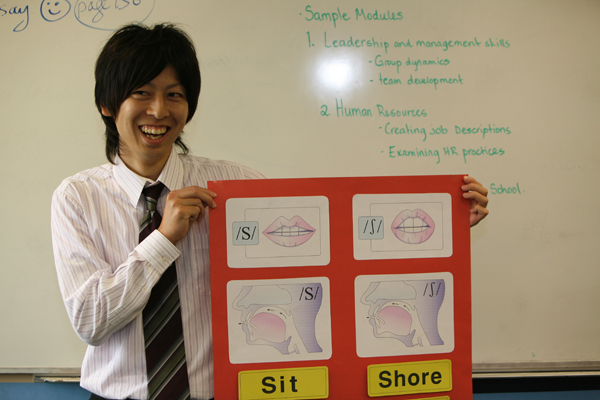 say ☺ page 158
· Sample Modules
1. Leadership and management skills
- Group dynamics
- team development
2 Human Resources
- Creating job Descriptions
- Examining HR practices
School.
/S/ /ʃ/
/S/ /ʃ/
Sit Shore